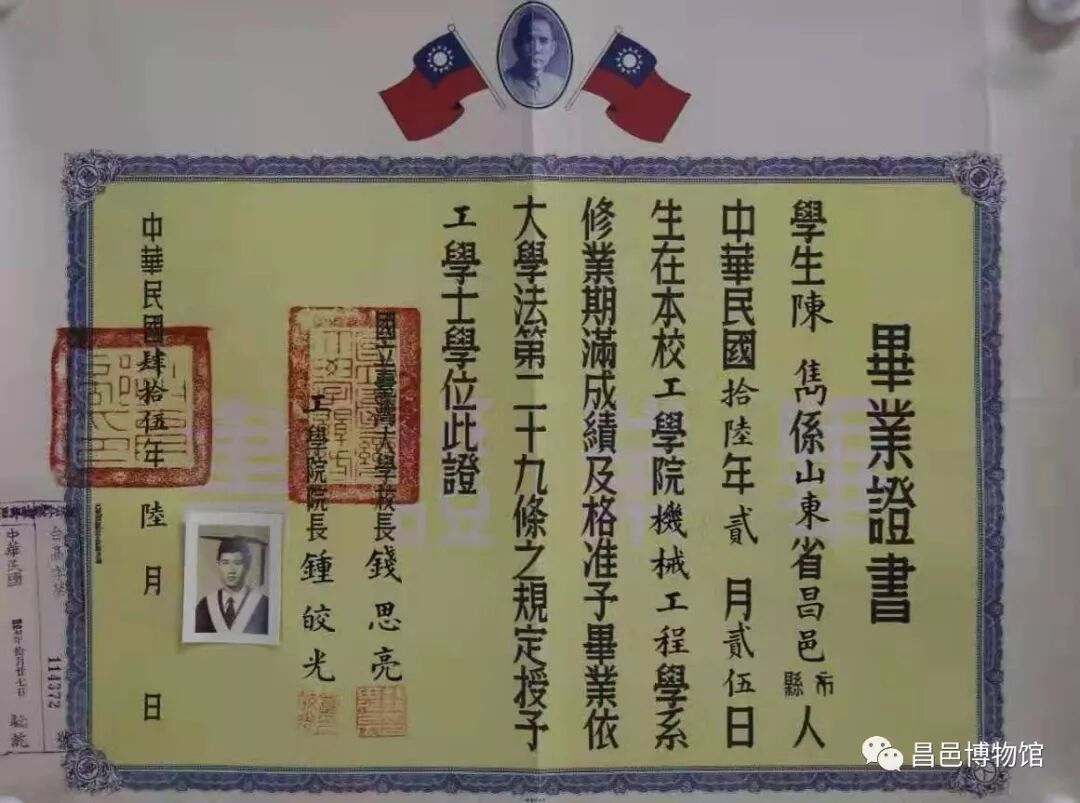 畢業證書
學生陳 雋係山東省昌邑縣市人
中華民國拾陸年貳 月貳伍日
生在本校工學院機械工程學系
修業期滿成績及格准予畢業依
大學法第二十九條之規定授予
工學士學位此證
國立臺灣大學校長錢思亮
工學院院長鍾皎光
中華民國肆拾伍年 陸 月 日
114372 號
中華民國
昌邑博物馆